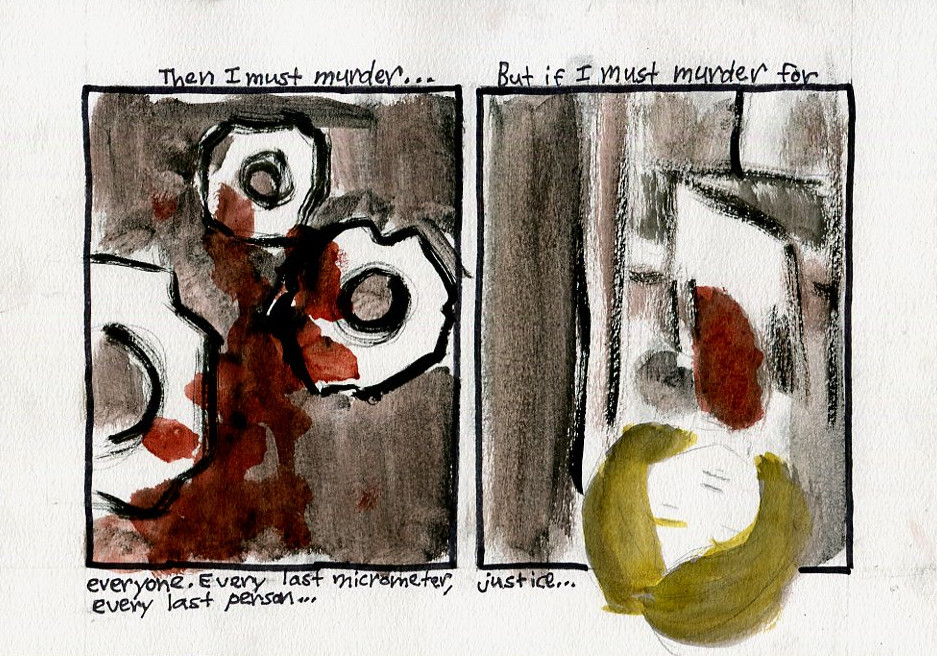 Then I must murder...
everyone. Every last micrometer,
every last person...
But if I must murder for
justice...